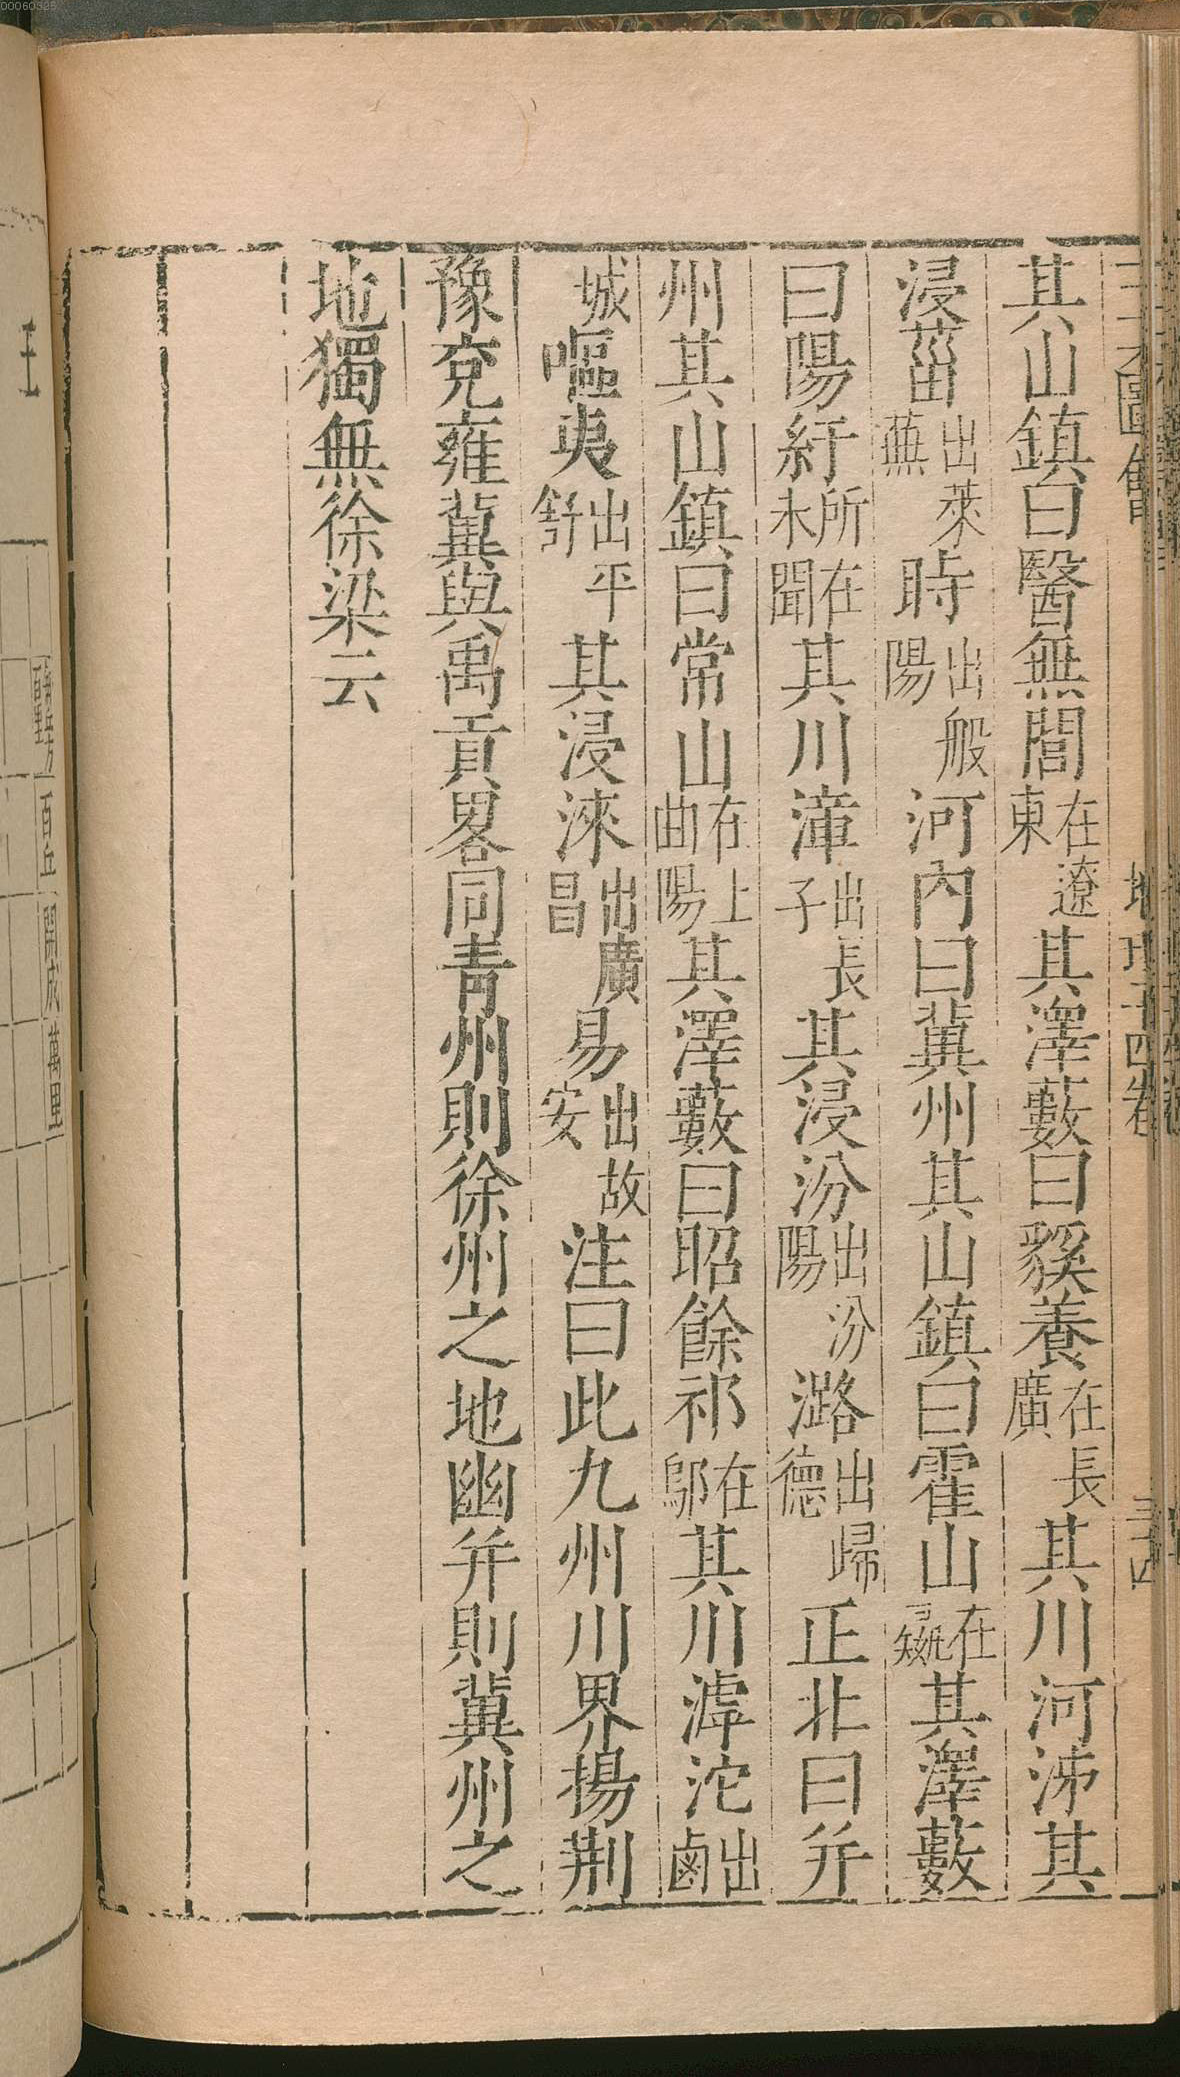 00060325
三才圖會
地理十四卷
其山鎮曰醫無閭在遼東其澤藪曰貕養在長廣其川河泲其
浸菑出萊蕪時出般陽河內曰冀州其山鎮曰霍山在彘其澤藪
曰陽紆所在未聞其川漳出長子其浸汾出汾陽潞出歸德正北曰并
州其山鎮曰常山在上曲陽其澤藪曰昭餘祁在鄔其川滹沱出鹵
城嘔夷出平舒其浸淶出廣昌易出故安注曰此九州川界揚荆
豫兗雍冀與禹貢畧同青州則徐州之地幽并則冀州之
地獨無徐梁云
開成
萬里